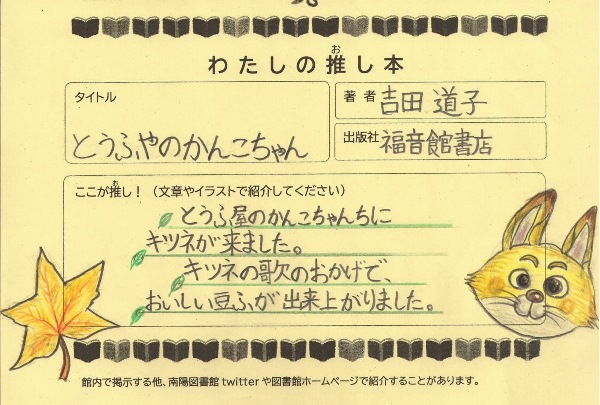 わたしの推し本
お
タイトル
とうふやのかんこちゃん
著者 吉田 道子
出版社 福音館書店
ここが推し！（文章やイラストで紹介してください）
お
とうふ屋のかんこちゃんちに
キツネが来ました。
キツネの歌のおかげで、
おいしい豆ふが出来上がりました。
館内で掲示する他、南陽図書館twitterや図書館ホームページで紹介することがあります。